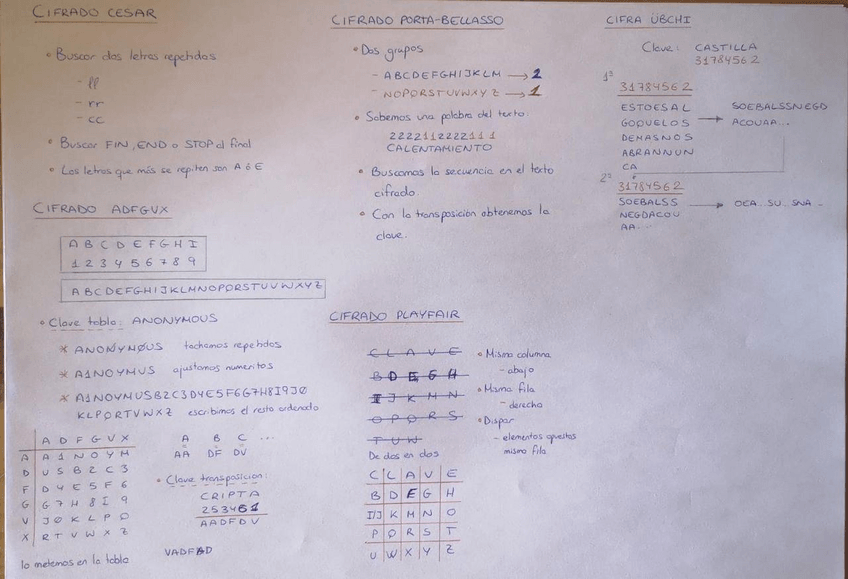 CIFRADO CESAR
• Buscar dos letras repetidas
- ll
- rr
- cc
• Buscar FIN, END o STOP al final
• Las letras que más se repiten son A ó E
CIFRADO ADFGVX
A B C D E F G H I
1 2 3 4 5 6 7 8 9
ABCDEFGHIJKLMNOPQRSTUVWXYZ
• Clave tabla: ANONYMOUS
* ANONYMOUS tachamos repetidos
* A1NOYMUS ajustamos numeritos
* A1NOYMUSB2C3D4E5F6G7H8I9J0
KLPQRTVWXZ escribimos el resto ordenado
A D F G V X
A A 1 N O Y M
D U S B 2 C 3
F D 4 E 5 F 6
G G 7 H 8 I 9
V J 0 K L P Q
X R T V W X Z
lo metemos en la tabla
A B C ...
AA DF DV
• Clave transposicion:
CRIPTA
253461
AADFDV
VADFAD
CIFRADO PORTA-BELLASSO
• Dos grupos
- ABCDEFGHIJKLM → 2
- NOPQRSTUVWXYZ → 1
• Sabemos una palabra del texto:
2222112222111
CALENTAMIENTO
• Buscamos la secuencia en el texto
cifrado.
• Con la transposicion obtenemos la
clave.
CIFRADO PLAYFAIR
C L A V E
B D E G H
I J K M N
O P Q R S
T U W
De dos en dos
C L A V E
B D E G H
I/J K M N O
P Q R S T
U W X Y Z
• Misma columna
- abajo
• Misma fila
- derecha
• Dispar
- elementos opuestos
misma fila
CIFRA ÜBCHI
Clave: CASTILLA
31784562
1º
31784562
ESTOESAL
GOQUELOS
DEMASNOS
ABRANNUN
CA
→ SOEBALSSNEGD
ACOUAA...
2º
31784562
SOEBALSS
NEGDACOU
AA...
→ OEA..SU..SNA..